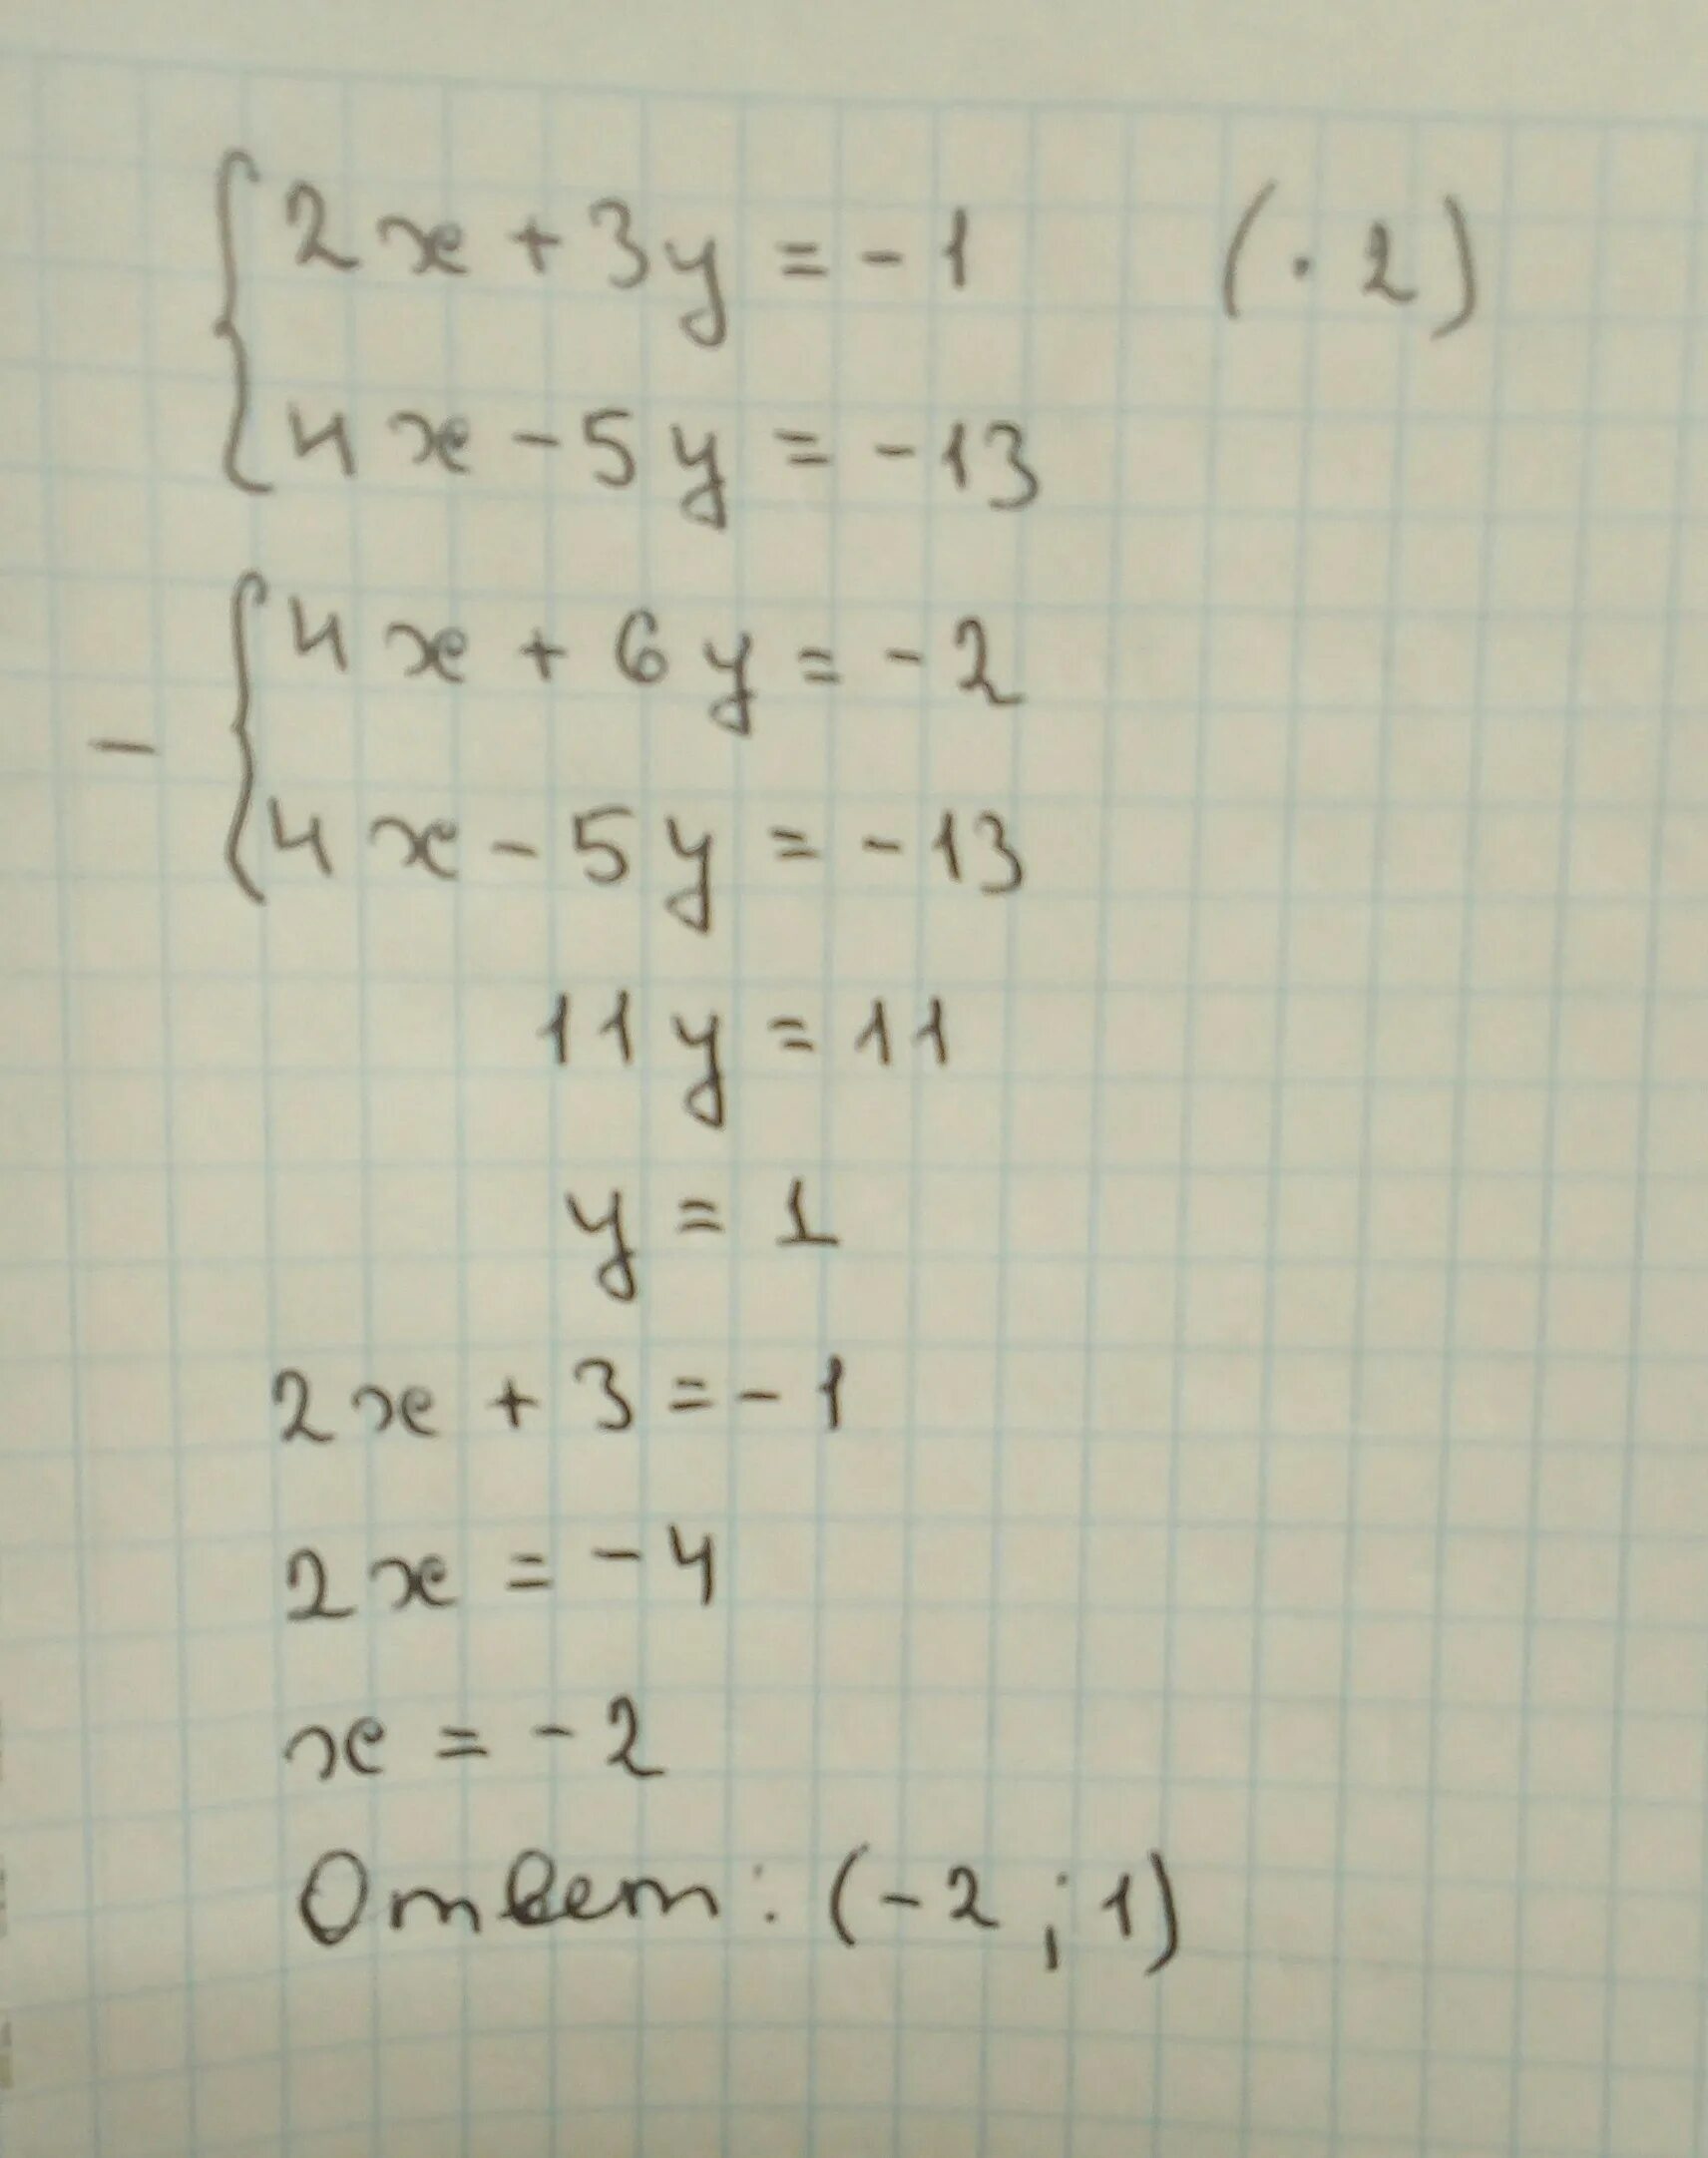 2x + 3y = -1 (· 2)
4x - 5y = -13
4x + 6y = -2
-
4x - 5y = -13
11y = 11
y = 1
2x + 3 = -1
2x = -4
x = -2
Ответ: (-2 ; 1)